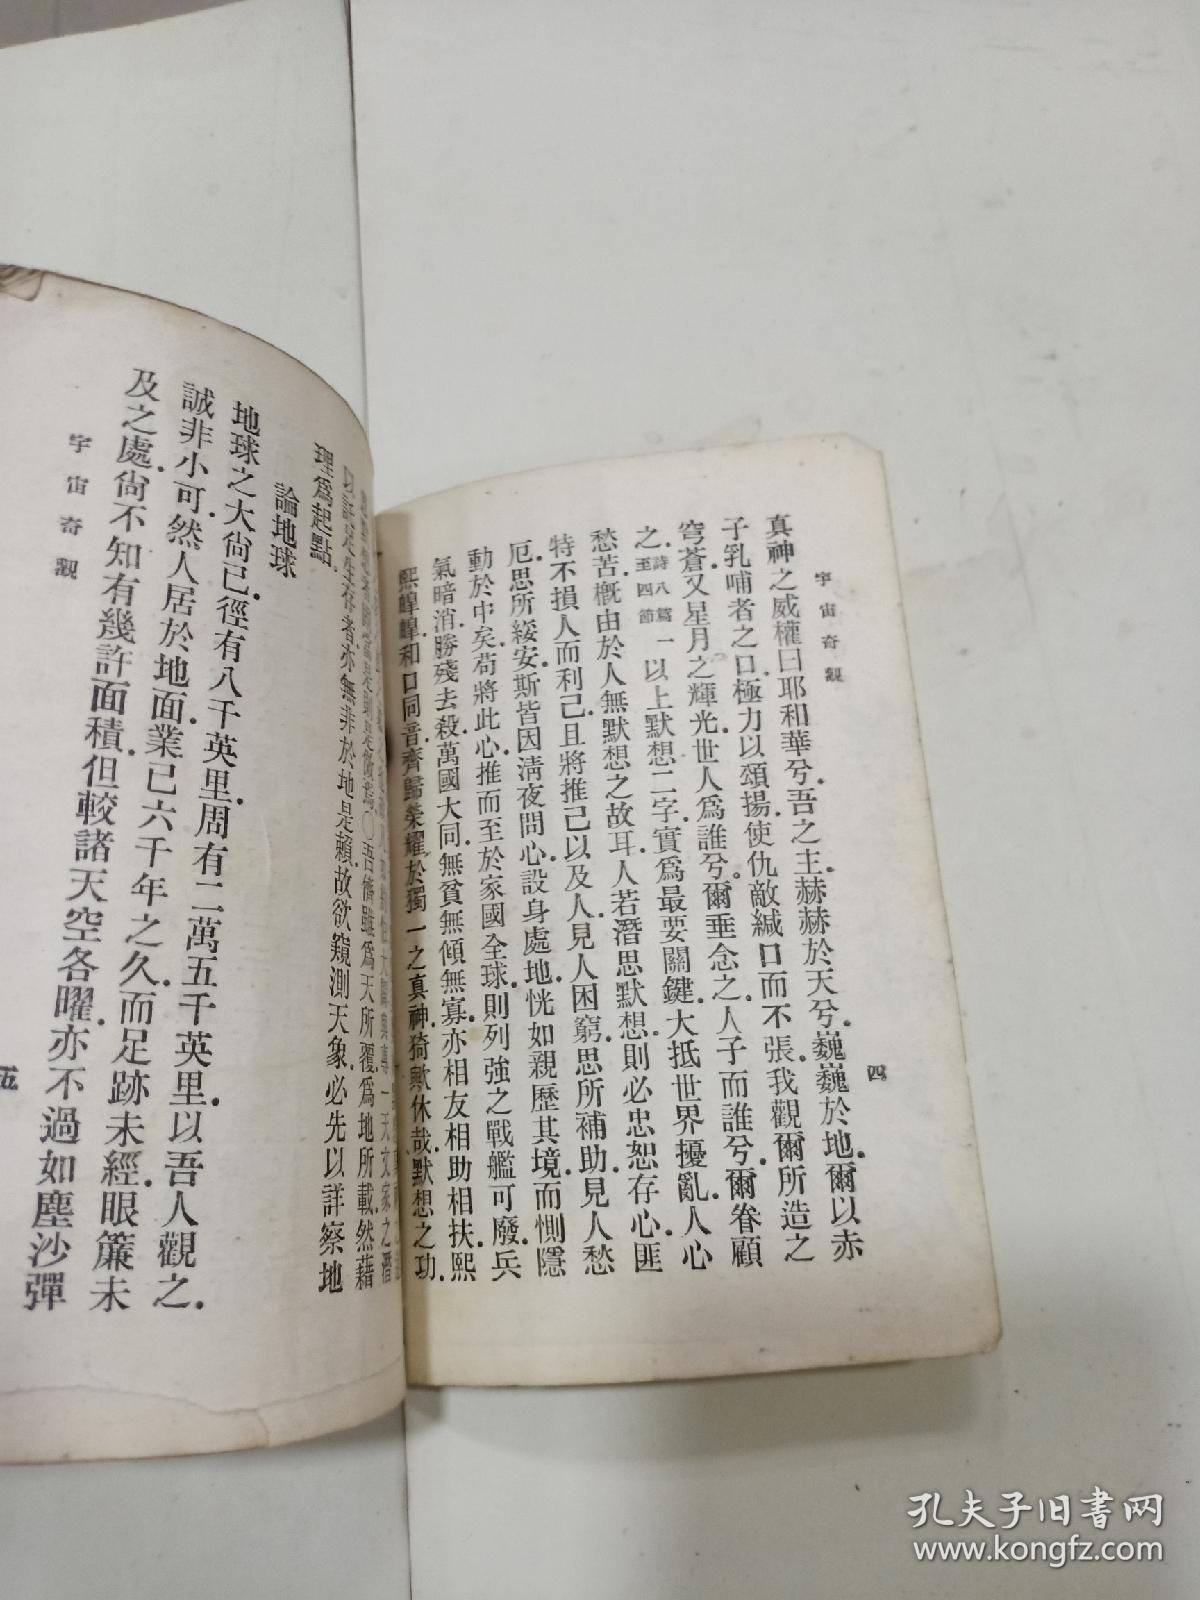 宇宙奇觀
四
真神之威權曰耶和華兮.吾之主.赫赫於天兮.巍巍於地.爾以赤
子乳哺者之口.極力以頌揚.使仇敵緘口而不張.我觀爾所造之
穹蒼.又星月之輝光.世人爲誰兮.爾垂念之.人子而誰兮.爾眷顧
之.詩八篇一至四節以上默想二字.實爲最要關鍵.大抵世界擾亂.人心
愁苦.概由於人無默想之故耳.人若潛思默想.則必忠恕存心.匪
特不損人而利己.且將推己以及人.見人困窮.思所補助.見人愁
厄.思所綏安.斯皆因清夜問心.設身處地.恍如親歷其境.而惻隱
動於中矣.苟將此心推而至於家國全球.則列強之戰艦可廢.兵
氣暗消.勝殘去殺.萬國大同.無貧無傾無寡.亦相友相助相扶.熙
熙皞皞.和口同音.齊歸榮耀於獨一之真神.猗歟休哉.默想之功.
○吾儕雖爲天所覆.爲地所載.然藉
以託足生存者.亦無非於地是賴.故欲窺測天象.必先以詳察地
理爲起點.
論地球
地球之大尙已.徑有八千英里.周有二萬五千英里.以吾人觀之.
誠非小可.然人居於地面.業已六千年之久.而足跡未經.眼簾未
及之處.尙不知有幾許面積.但較諸天空各曜.亦不過如塵沙彈
宇宙奇觀
五
孔夫子旧书网
www.kongfz.com